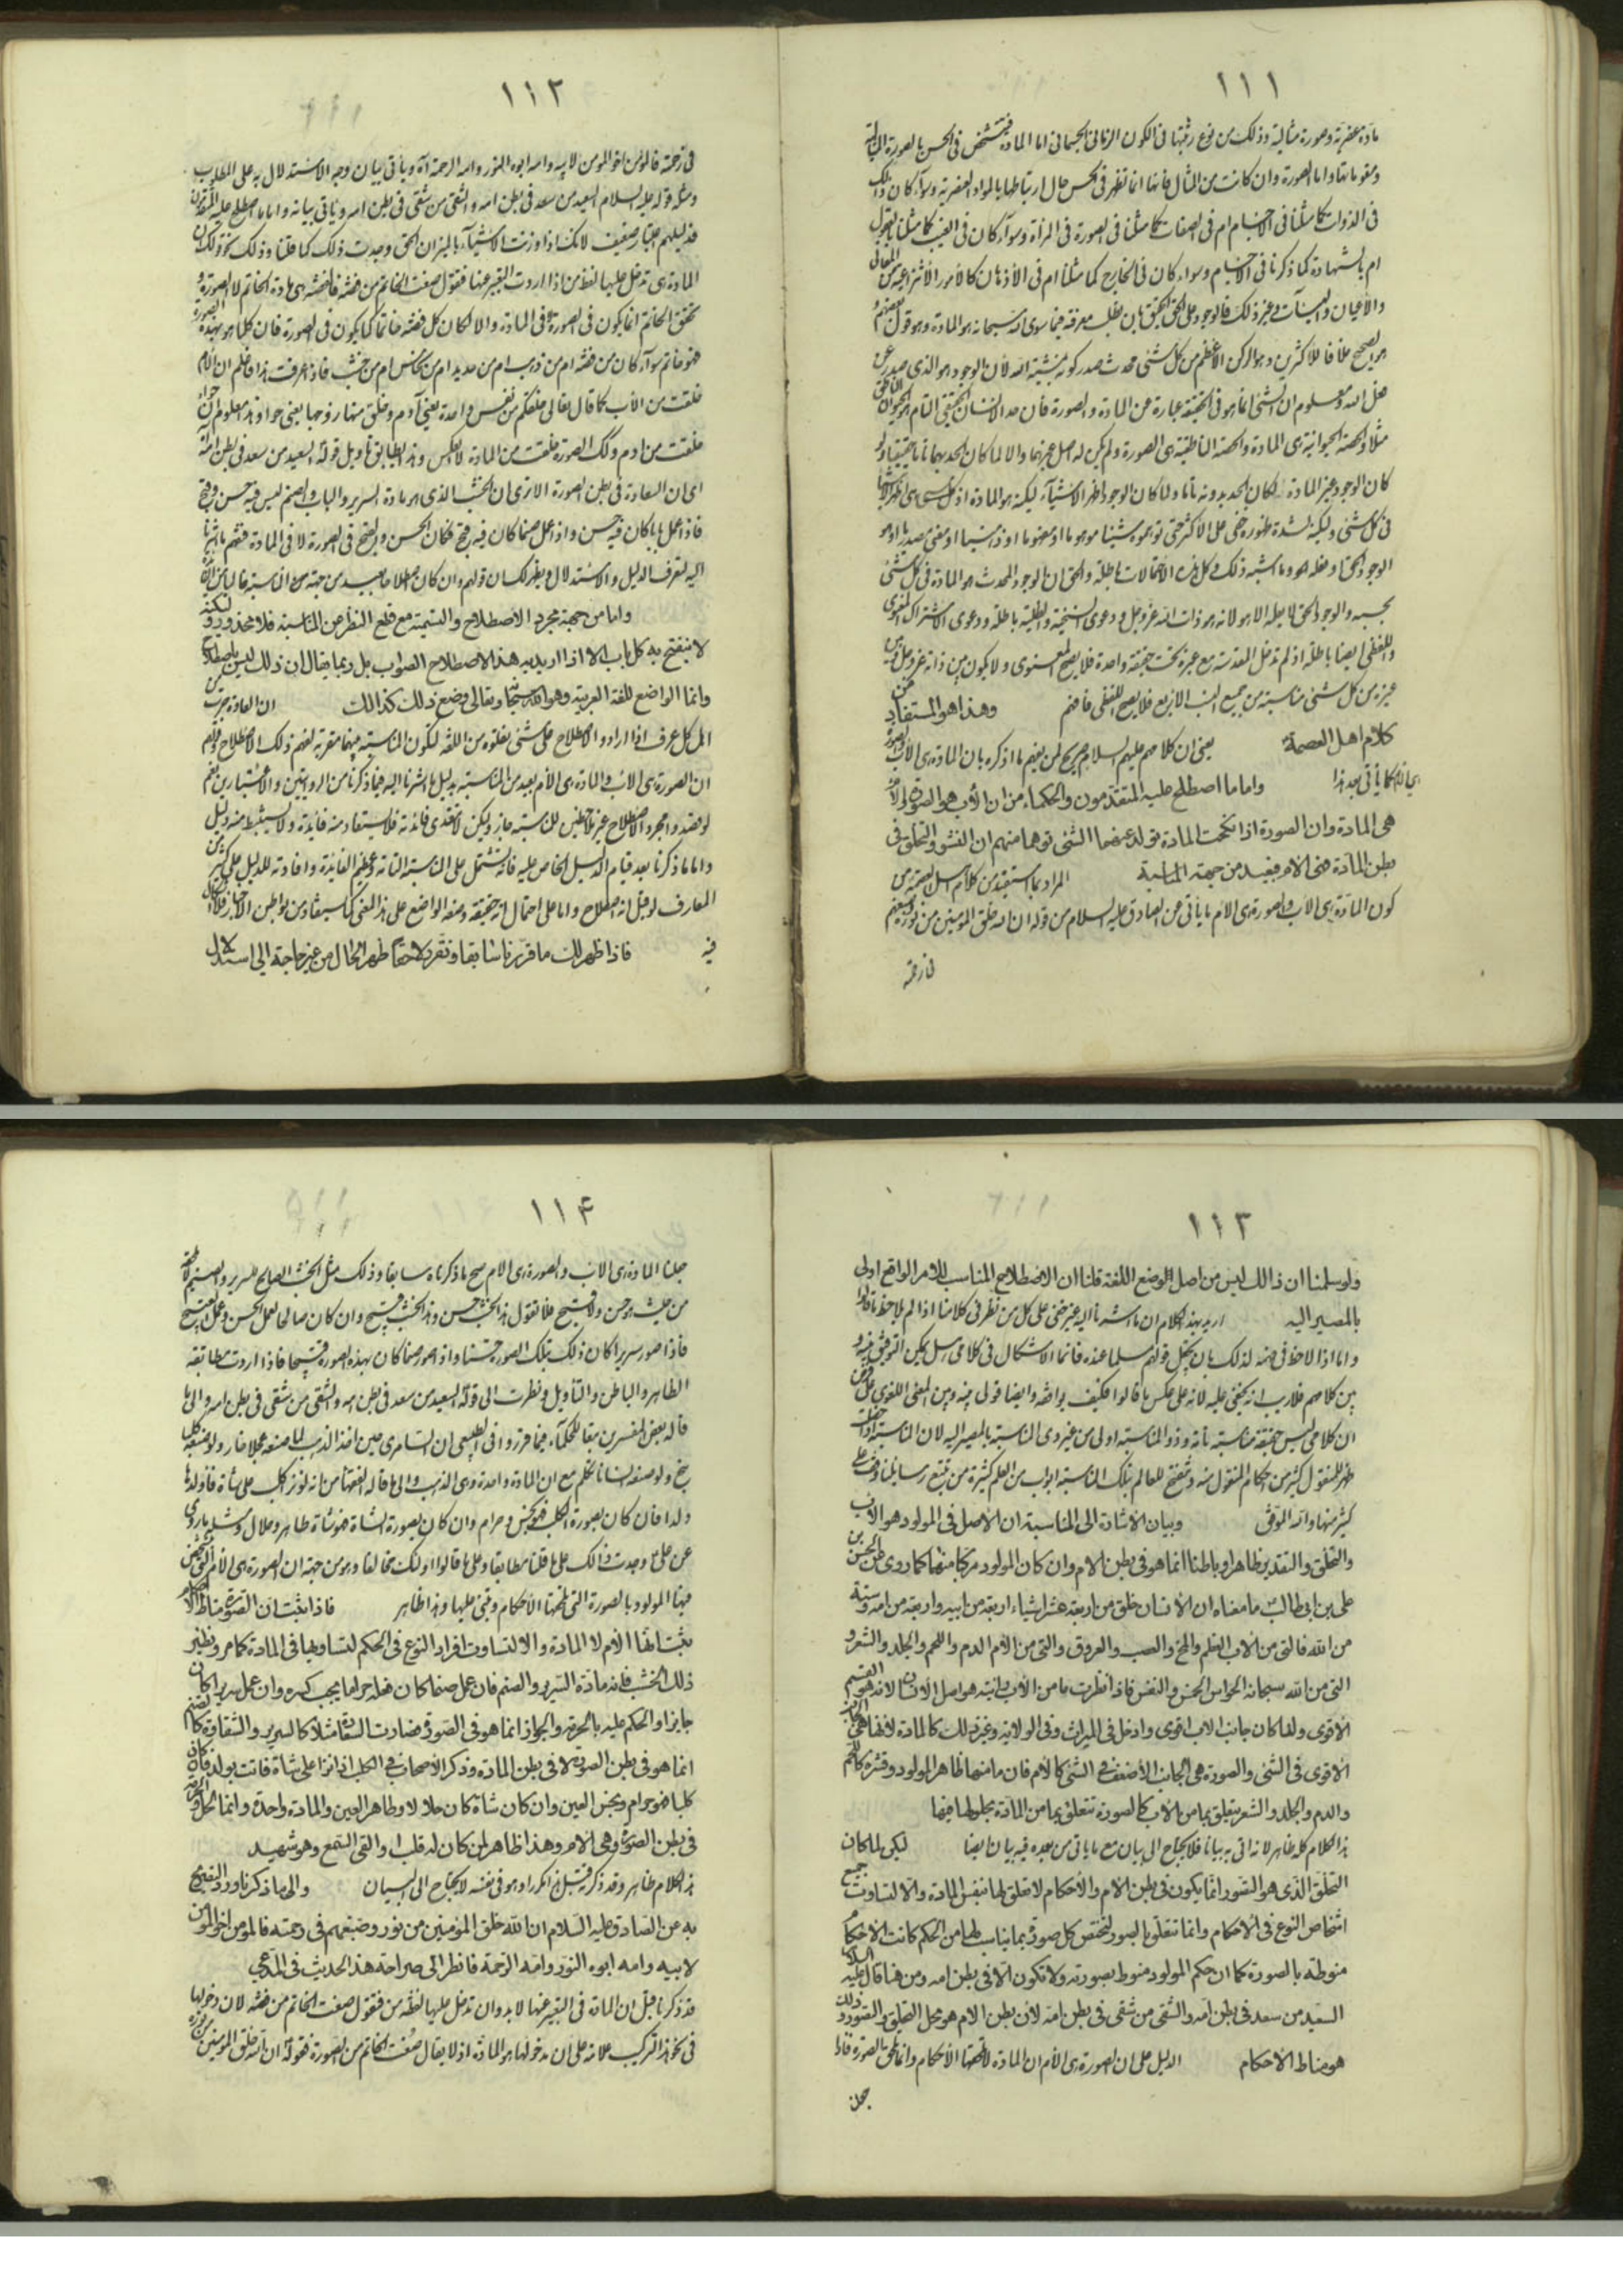 ١١١
مادة عنصرية وصورة مثالية وذلك من نوع رتبتها فى الكون الزمانى الجسمانى اما المادة فتشخص فى الحس بالصورة المثالية
ومقوماتها واما الصورة وان كانت من المثال فانها انما تظهر فى الحس حال ارتباطها بالمواد العنصرية وسوآء كان ذلك
فى الذوات كما مثلنا فى الاجسام ام فى الصفات كما مثلنا فى الصورة فى المرآة وسوآء كان فى الغيب كما مثلنا
ام بالشهادة كما ذكرنا فى الاجسام وسواء كان فى الخارج كما مثلنا ام فى الأذهان كالأمور الأنتزاعية من المعانى
والأعيان وغير ذلك فالوجود على الحق الحقيق بان يطلب معرفته فيما سوى الله سبحانه هو المادة وهو قول بعضهم
وهو الصحيح خلافا للاكثرين وهو الركن الأعظم من كل شئ محدث صدر كونه بمشية الله لأن الوجود هو الذى صدر عن
فعل الله ومعلوم ان الشئ انما هو فى الحقيقة عبارة عن المادة والصورة فان حد الانسان الحقيقى التام هو الحيوان الناطق
مثلا والحصة الحيوانية هى المادة والحصة الناطقية هى الصورة ولم يكن له اصل غيرهما والا لما كان الحد بهما تاما حقيقيا ولو
كان الوجود غير المادة لكان الحد بدونه تاما ولما كان الوجود اظهر الاشيآء لكنه هو المادة اذ كل شئ
فى كل شئ ولكنه لشدة ظهوره خفى على الاكثر حتى توهموه شيئا موهوما او مفهوما او ذهنيا او معنى مصدريا او هو
الوجود الحق او فعله هو وما اشبه ذلك وكل هذه الأحتمالات باطلة والحق ان الوجود المحدث هو المادة فى كل شئ
بحسبه والوجود الحق لا يعلمه الا هو لانه هو ذات الله عز وجل ودعوى السنخية والظلية باطلة ودعوى الاشتراك المعنوى
واللفظى ايضا باطلة اذ لم تدخل المقدسة مع غيره تحت حقيقة واحدة فلا يصح المعنوى ولا يكون بين ذاته عز وجل وبين
غيره من كل شئ مناسبة من جميع النسب الاربع فلا يصح اللفظى فافهم وهذا هو المستفاد من
كلام اهل العصمة يعنى ان كلامهم عليهم السلام صريح لمن يفهم ما اذكره بان المادة هى الأب والصورة
هى الام كما يأتى بعد هذا واما ما اصطلح عليه المتقدمون والحكماء من ان الأب هو الصورة والام
هى المادة وان الصورة اذا نكحت المادة تولد عنهما الشئ توهما منهم ان النشو والتخلق فى
بطن المادة فهى الام فبعيد من جهة المناسبة المراد بما استفيد من كلام اهل العصمة من
كون المادة هى الأب والصورة هى الام ما يأتى عن الصادق عليه السلام من قوله ان الله خلق المؤمنين من نوره وصبغهم
فى رحمته
١١٢
فى رحمته فالمؤمن اخو المؤمن لابيه وامه ابوه النور وامه الرحمة آه ويأتى بيان وجه الاستدلال به على المطلوب
ومثله قوله عليه السلام السعيد من سعد فى بطن امه والشقى من شقى فى بطن امه ويأتى بيانه واما ما اصطلح عليه المتقدمون
فدليلهم اعتبار ضعيف لانك اذا وزنت الاشيآء بالميزان الحق وجدت ذلك كما قلنا وذلك كون
المادة هى تدخل عليها لفظ من اذا اردت التعبير عنها فتقول صغت الخاتم من فضة فالفضة هى مادة الخاتم لا الصورة و
تحقق الخاتم انما يكون فى الصورة لا فى المادة والا لكان كل فضة خاتما كما يكون فى الصورة فان كلما هو بهذه الصورة
فهو خاتم سوآء كان من فضة ام من ذهب ام من حديد ام من نحاس ام من خشب فاذا عرفت هذا فاعلم ان الام
خلقت من الأب كما قال تعالى خلقكم من نفس واحدة يعنى آدم وخلق منها زوجها يعنى حوا وهذا معلوم ان حواء
خلقت من ادم وكك الصورة خلقت من المادة لا العكس وهذا يطابق تأويل قوله السعيد من سعد فى بطن امه
اى ان السعادة فى بطن الصورة الا ترى ان الخشب الذى هو مادة السرير والباب والصنم ليس فيه حسن وقبح
فاذا عمل بابا كان فيه حسن واذا عمل صنما كان فيه قبح فكان الحسن والقبح فى الصورة لا فى المادة فتفهم ما اشرنا
اليه لتعرف الدليل والاستدلال ويظهر لك ان قولهم وان كان اصطلاحا بعيد من جهة المناسبة
واما من جهة مجرد الاصطلاح والتسمية مع قطع النظر عن المناسبة فلا محذور فيه لكنه
لا ينفتح به كل باب الا اذا اريد به هذا الاصطلاح الصواب بل ربما يقال ان ذلك ليس باصطلاح
وانما الواضع للغة العربية وهو الله سبحانه وتعالى وضع ذلك كذلك ان العادة جرت من
اهل كل عرف اذا ارادوا الاصطلاح على شئ نقلوه من اللغة لتكون المناسبة بينهما مقربة لفهم ذلك الاصطلاح وقولهم
ان الصورة هى الاب والمادة هى الأم بعيد من المناسبة بدليل ما اشرنا اليه فيما ذكرنا من الروايتين والاعتبارين نعم
لو قصدوا مجرد الاصطلاح غير ملاحظين للمناسبة جاز ولكن لا يستفاد منه فائدة ولا يستنبط منه دليل
واما ما ذكرنا بعد قيام الدليل الخاص عليه فانه تشتمل على المناسبة التامة وعظيم الفائدة وافادته للدليل على كثير من
المعارف لو قيل انه اصطلاح واما على احتمال انه حقيقة وضعه الواضع على هذا المعنى كما سيفاد من بواطن الاخبار فلا اشكال
فيه فاذا ظهر لك ما قررنا سابقا وتقرر لاحقا ظهر الحال من غير حاجة الى استدلال
١١٣
ولو سلمنا ان ذلك ليس من اصل الوضع اللغة قلنا ان الاصطلاح المناسب للامر الواقع اولى
بالمصير اليه اريد بهذا الكلام ان ما اشرنا اليه غير خفى على كل من نظر فى كلامنا اذا لم يلاحظ ما قالوا
واما اذا لاحظ فى ضمنه لذلك بان يجعل قولهم مسلما عنده فانما الاشكال فى كلامى هل يمكن التوفيق بينه و
بين كلامهم فلا ريب انه يخفى عليه لانه على عكس ما قالوا فكيف يوافقه وايضا قولى بينه وبين المعنى اللغوى على فرض
ان كلامى ليس حقيقة مناسبة تامة وذو المناسبة اولى من غير ذى المناسبة بالمصير اليه لان المناسبة
للمنقول كثير من احكام المنقول منه وتنفتح للعالم بتلك المناسبة ابواب من العلم كثيرة من تتبع رسايلنا وقف على
كثير منها والله الموفق وبيان الاشارة الى المناسبة ان الاصل فى المولود هو الاب
والتخلق والتقدير ظاهرا وباطنا انما هو فى بطن الام وان كان المولود مركبا منهما كما روى عن الحسن بن
على بن ابى طالب ما معناه ان الانسان خلق من اربعة عشر اشياء اربعة من ابيه واربعة من امه وستة
من الله فالتى من الاب العظم والمخ والعصب والعروق والتى من الأم الدم واللحم والجلد والشعر و
التى من الله سبحانه الحواس الخمس والنفس فاذا نظرت ما من الأب رايته هو اصل الانسان لانه هو القسم
الاقوى ولذا كان جانب الاب اقوى وادخل فى الميراث وفى الولاية وغير ذلك كالمادة لانها هى الجانب
الاقوى فى الشئ والصورة هى الجانب الأضعف فى الشئ كالأم فان ما منها ظاهر المولود وقشره كاللحم
والدم والجلد والشعر يتعلق بما من الاب كالصورة تتعلق بما من المادة بحلولها فيها
هذا الكلام كله ظاهر لانه اتى به بيانا فلا يحتاج الى بيان مع ما يأتى من بعده فيه بيان ايضا لكن لما كان
التخلق الذى هو التصور انما يكون فى بطن الام والأحكام لا تعلق لها بنفس المادة والا لتساوت جميع
اشخاص النوع فى الاحكام وانما تتعلق بالصور لتختص كل صورة بما يناسب لها من الحكم كانت الاحكام
منوطة بالصورة كما ان حكم المولود منوط بصورته ولا تكون الا فى بطن امه ومن هنا قال عليه السلام
السعيد من سعد فى بطن امه والشقى من شقى فى بطن امه لأن بطن الام هو محل التخليق والتصوير وذلك
هو مناط الاحكام الدليل على ان الصورة هى الأم ان المادة لا تلحقها الأحكام وانما تلحق الصورة فاذا
جعلنا
١١۴
جعلنا المادة هى الاب والصورة هى الام صح ما ذكرناه سابقا وذلك مثل الخشب الصالح للسرير والصنم
من حيث هو حسن ولا قبيح فلا تقول هذا الخشب حسن وهذا الخشب قبيح وان كان صالحا لعمل الحسن وعمل القبيح
فاذا صور سريرا كان ذلك بتلك الصورة حسنا واذا صور صنما كان بهذه الصورة قبيحا فاذا اردت مطابقة
الظاهر والباطن والتأويل ونظرت الى قوله السعيد من سعد فى بطن امه والشقى من شقى فى بطن امه والى ما
قاله بعض المفسرين تبعا للحكمآء فيما قرروا فى الطبيعى ان السامرى حين اخذ الذهب لما صنعه عجلا خار ولو صنعه كلبا
نبح ولو صنعه انسانا تكلم مع ان المادة واحدة وهى الذهب والى ما قاله الفقهآء من انه لو نزى كلب على شاة فاولدها
ولدا فان كان بصورة الكلب فهو نجس وحرام وان كان بصورة الشاة فهو شاة طاهر وحلال
عن على وجدت ذلك على ما قلنا مطابقا وعلى ما قالوا اولئك مخالفا وهو من جهة ان الصورة هى الأم
فيها المولود بالصورة التى تلحقها الأحكام وتبنى عليها وهذا ظاهر فاذا ثبت ان الصورة مناط الاحكام
ثبت انها الأم لا المادة والا لتساوت افراد النوع فى الحكم لتساويها فى المادة كما مر ونظير
ذلك الخشب فانه مادة السرير والصنم فان عمل صنما كان فعله حراما يجب كسره وان عمل سريرا كان
جايزا والحكم عليه بالحرمة والجواز انما هو فى الصورة فصارت السعادة مثلا كالسرير والشقاوة كالصنم
انما هو فى بطن الصورة لا فى بطن المادة وذكر الأصحاب فى الكلب اذا نزا على شاة فاتت بولد فان كان
كلبا فهو حرام ونجس العين وان كان شاة كان حلالا وطاهر العين والمادة واحدة وانما الحل والحرمة
فى بطن الصورة وهى الام وهذا ظاهر لمن كان له قلب او القى السمع وهو شهيد
هذا الكلام ظاهر وقد ذكر قبل هذا مكررا وهو فى نفسه لا يحتاج الى البيان والى ما ذكرنا ورد التصريح
به عن الصادق عليه السلام ان الله خلق المؤمنين من نوره وصبغهم فى رحمته فالمؤمن اخو المؤمن
لابيه وامه ابوه النور وامه الرحمة فانظر الى صراحة هذا الحديث فى المدعى
قد ذكرنا قبل ان المادة فى التعبير عنها لابد وان تدخل عليها لفظة من فتقول صغت الخاتم من فضة لان دخولها
فى نحو هذا التركيب علامة على ان مدخولها هو المادة اذ لا يقال صنعت الخاتم من الصورة فقوله ان الله خلق المؤمنين من نوره